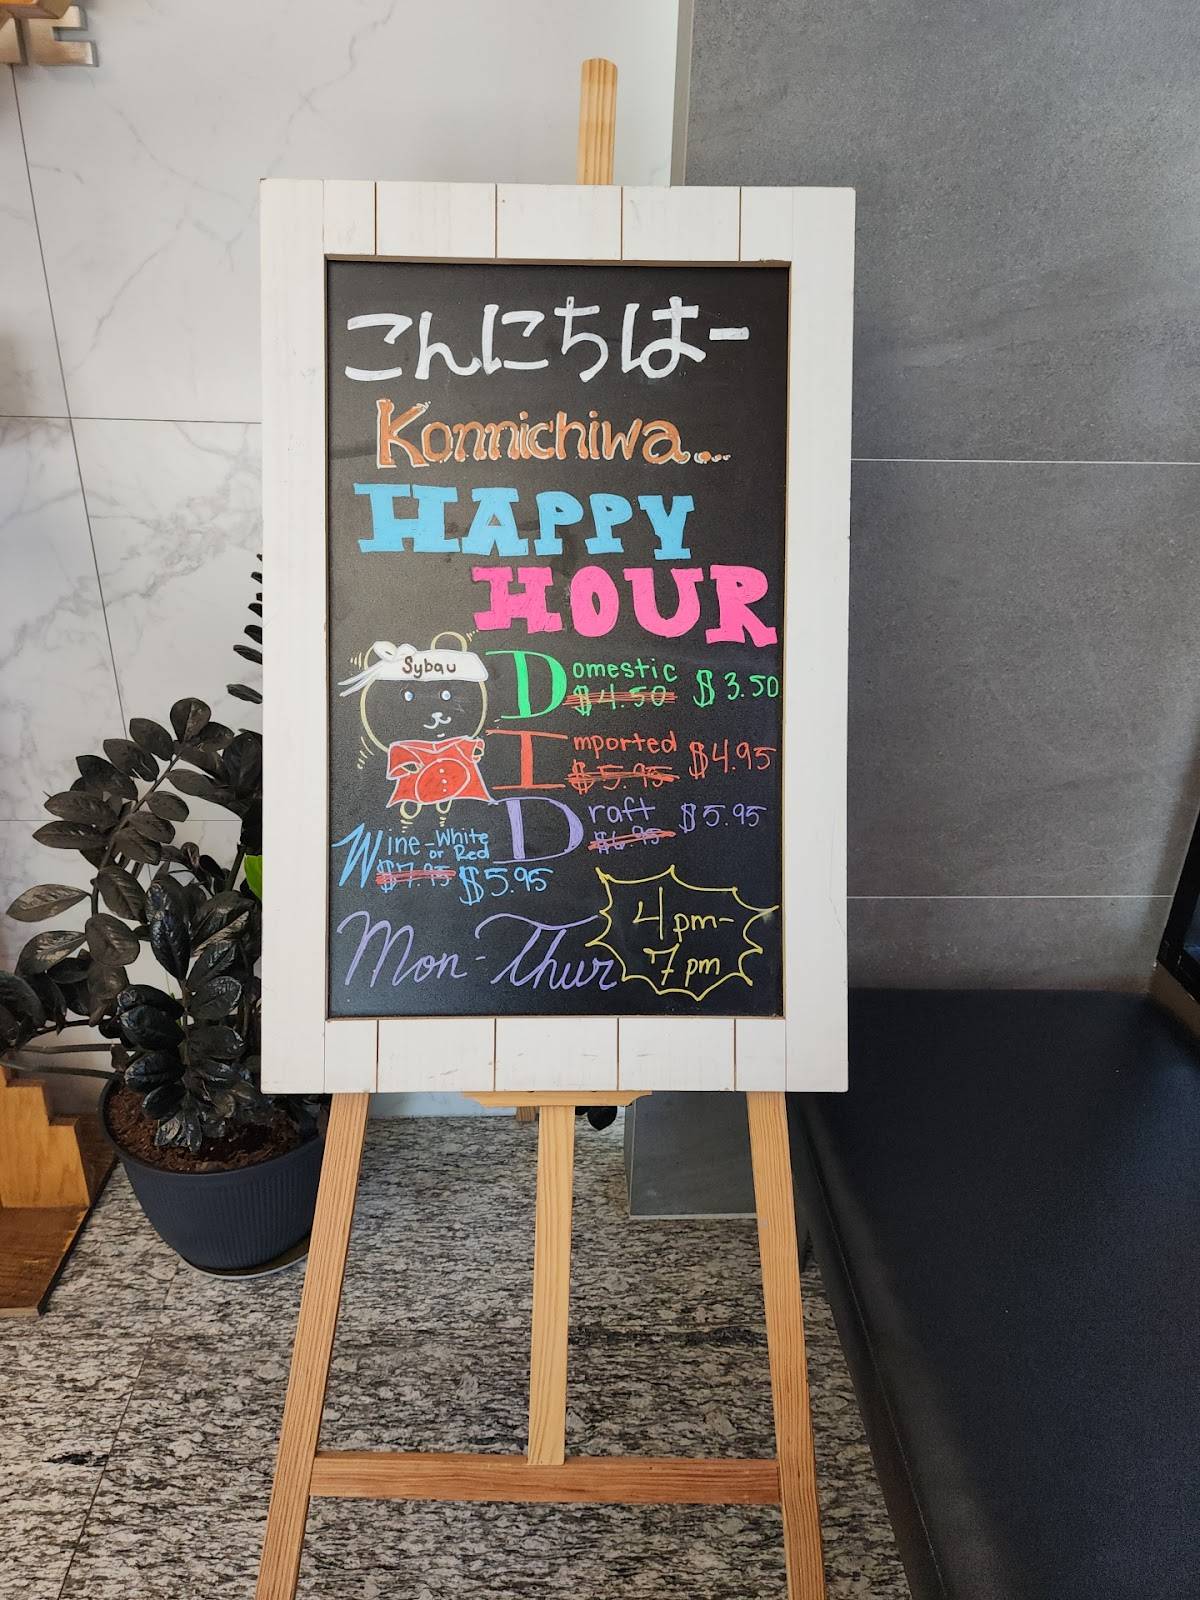 こんにちはー
Konnichiwa...
HAPPY
HOUR
Sybau
Domestic $4.50 $3.50
Imported $5.95 $4.95
Draft $6.95 $5.95
Wine - White or Red
$7.95 $5.95
Mon-Thur
4pm-
7pm